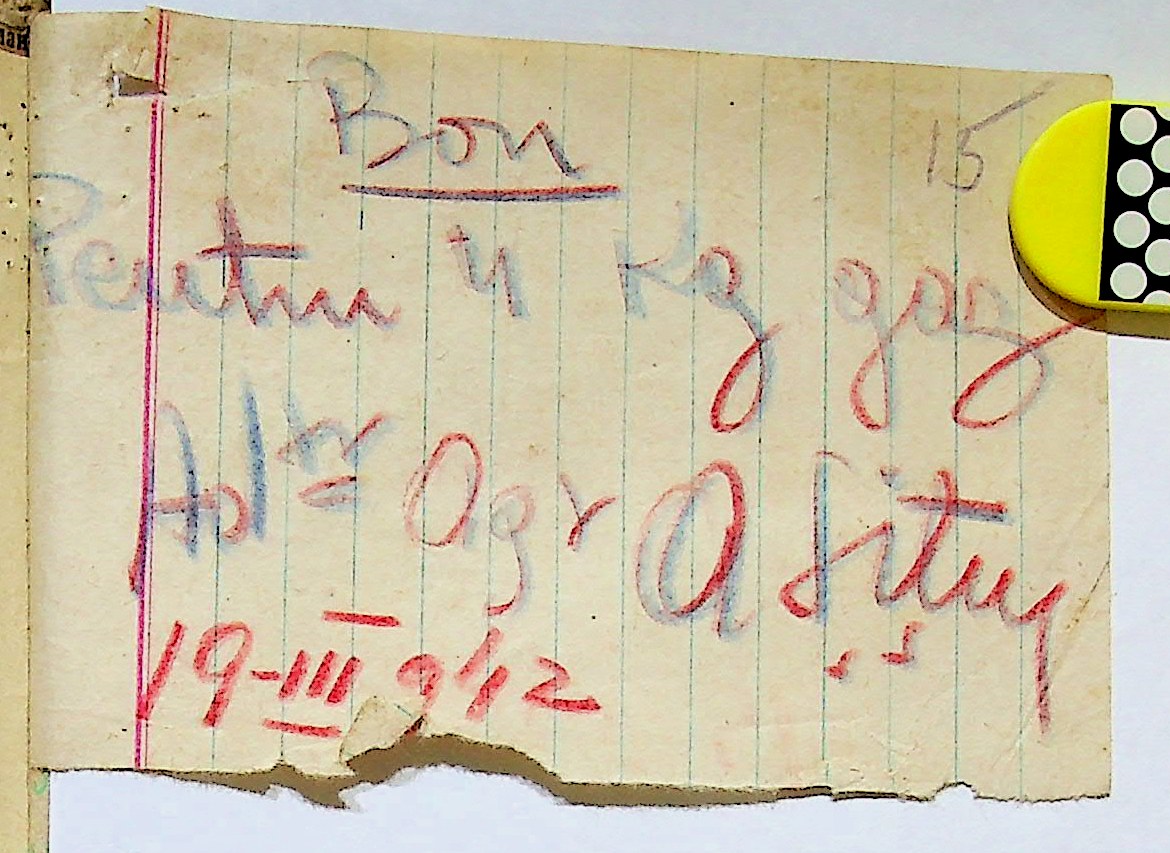 Bon
15
Pentru 4 Kg gaz
Agr A
19-III 942